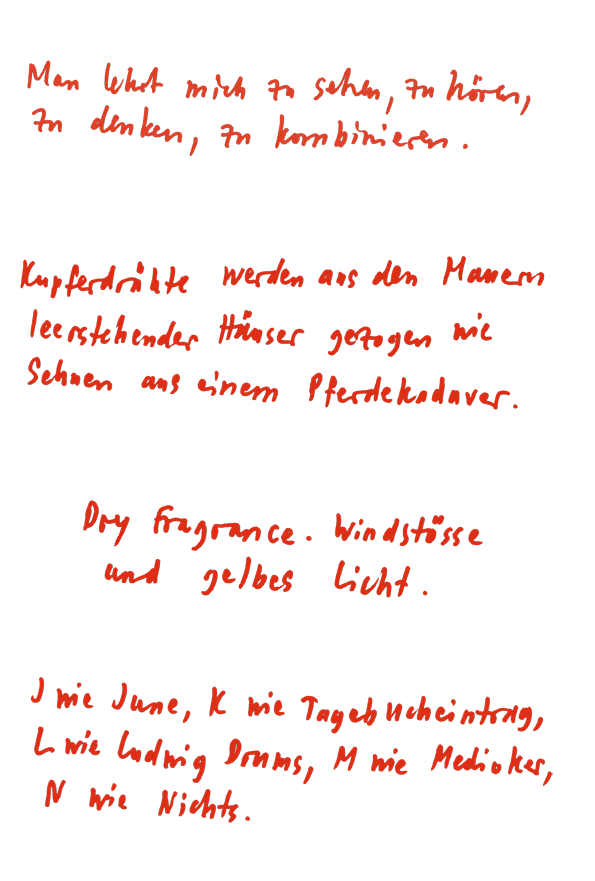 Man lehrt mich zu sehen, zu hören,
zu denken, zu kombinieren.
Kupferdrähte werden aus den Mauern
leerstehender Häuser gezogen wie
Sehnen aus einem Pferdekadaver.
Dry Fragrance. Windstösse
und gelbes Licht.
J wie June, K wie Tagebucheintrag,
L wie Ludwig Drums, M wie Medioker,
N wie Nichts.